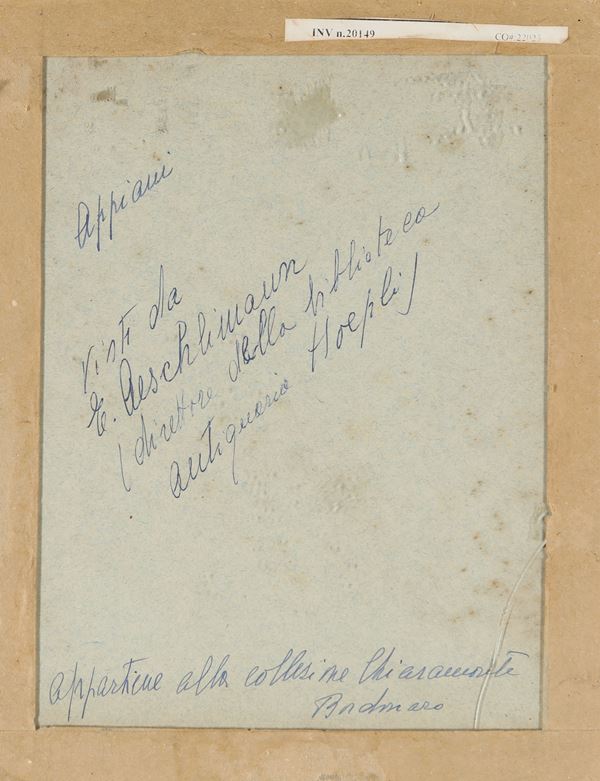 INV n.20149
Appiani
visti da
E. Aeschlimann
(direttore della biblioteca
antiquaria Hoepli)
appartiene alla collezione Chiaramonte
Bordonaro